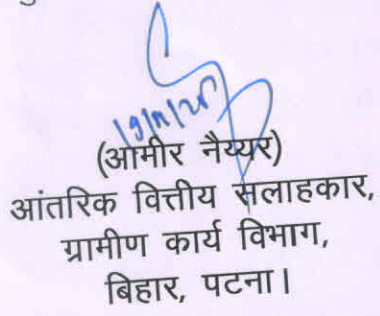 (आमीर नैय्यर)
आंतरिक वित्तीय सलाहकार,
ग्रामीण कार्य विभाग,
बिहार, पटना।